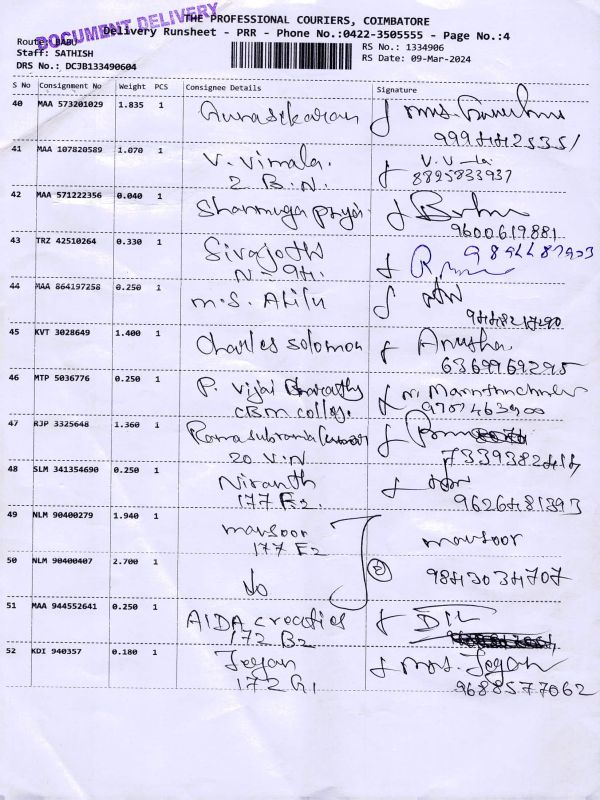 DOCUMENT DELIVERY
THE PROFESSIONAL COURIERS, COIMBATORE
Delivery Runsheet - PRR - Phone No.:0422-3505555 - Page No.:4
Route: BABU
Staff: SATHISH
DRS No.: DCJB133490604
RS No.: 1334906
RS Date: 09-Mar-2024
S No Consignment No Weight PCS Consignee Details Signature
40 MAA 573201029 1.835 1 Gunasekaran mrs.
9994425351
41 MAA 107820589 1.070 1 V. Vimala. V. V-la
2 B.N. 8825833937
42 MAA 571222356 0.040 1 Shanmuga priya
9600619881
43 TRZ 42510264 0.330 1 Sivajothi
N-94.
44 MAA 864197258 0.250 1 M.S. Akilu
45 KVT 3028649 1.400 1 Charles solomon Anusha
6369969295
46 MTP 5036776 0.250 1 P. Vijai Bharathy
CBM college.
47 RJP 3325648 1.360 1 Ramasubramania Kumar
20 V.N 7339382414
48 SLM 341354690 0.250 1 Niranth
177 F2. 9626481393
49 NLM 90400279 1.940 1 mansoor mansoor
177 F2
50 NLM 90400407 2.700 1 do 2 9843034707
51 MAA 944552641 0.250 1 AIDA creaties DIL
172 B2
52 KDI 940357 0.180 1 Jegan mrs. Jegan
172 G1 9688577062